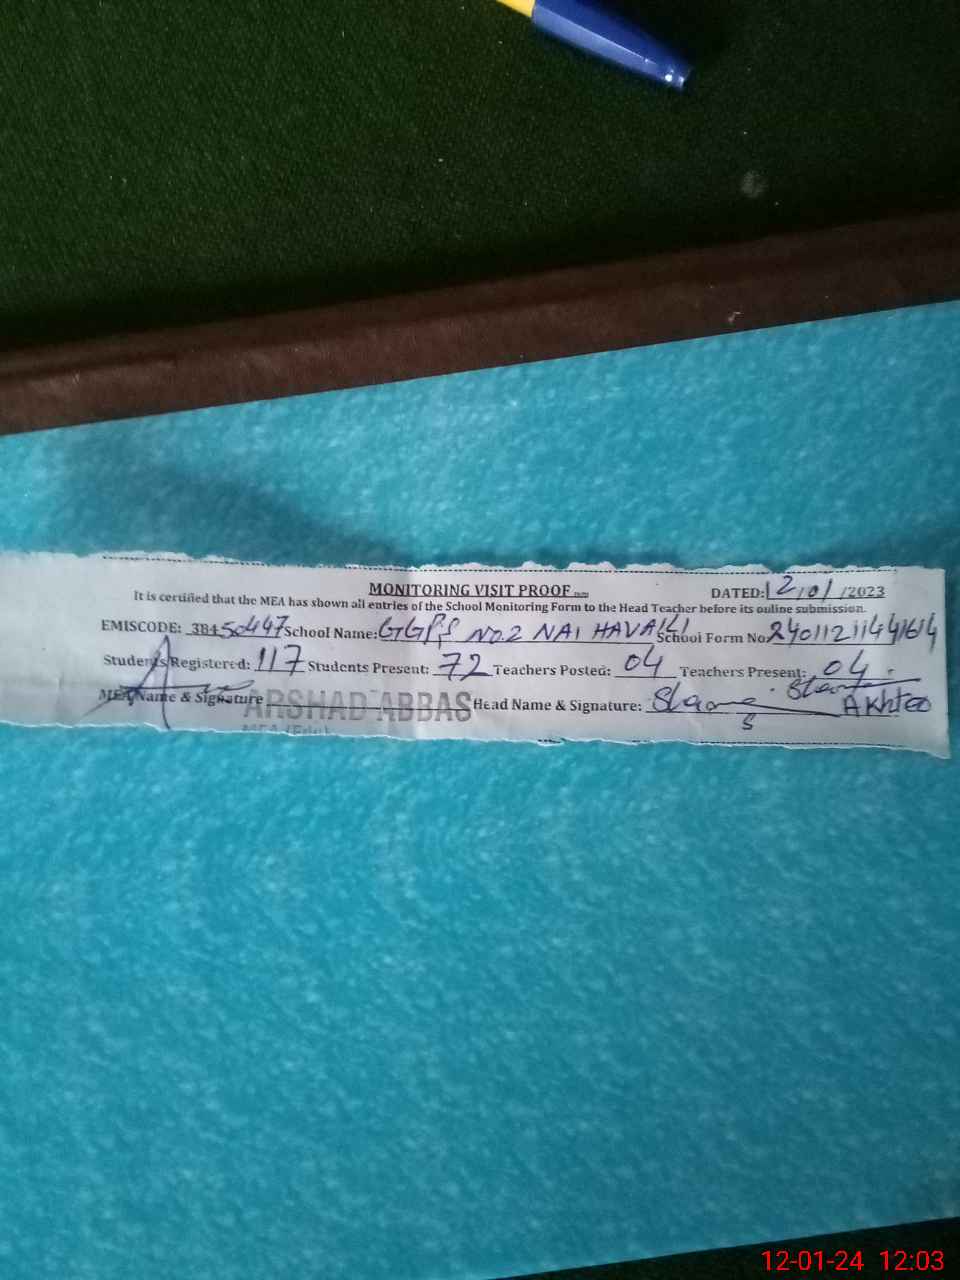 MONITORING VISIT PROOF DATED: 12/01/2023
It is certified that the MEA has shown all entries of the School Monitoring Form to the Head Teacher before its online submission.
EMISCODE: 38450447 School Name: GGPS NO.2 NAI HAVAILI School Form No 24011211441614
Students Registered: 117 Students Present: 72 Teachers Posted: 04 Teachers Present: 04
MEA Name & Signature ARSHAD ABBAS Head Name & Signature: Akhter
MEA (Edu)
12-01-24 12:03